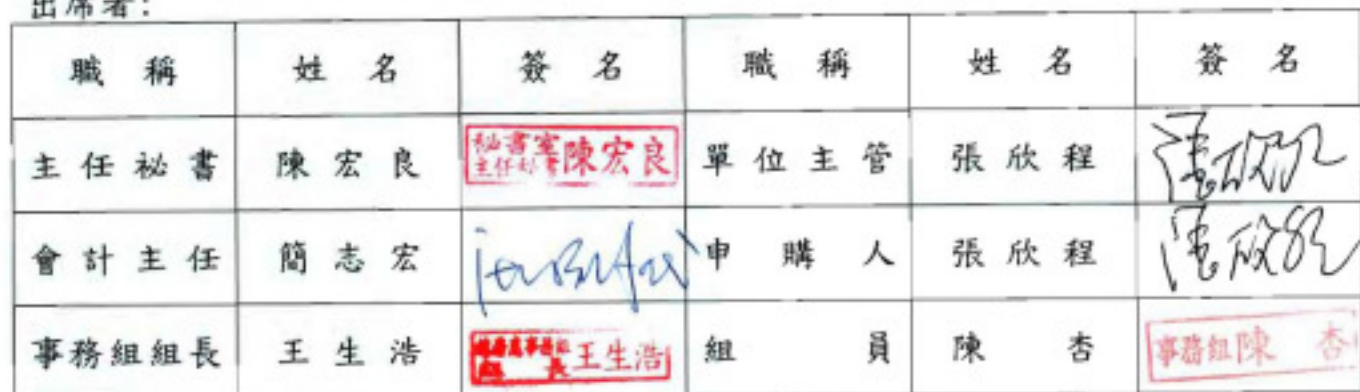 出席者:
職稱 姓名 簽名 職稱 姓名 簽名
主任祕書 陳宏良 祕書室主任祕書陳宏良 單位主管 張欣程
會計主任 簡志宏 申購人 張欣程
事務組組長 王生浩 總務處事務組組長王生浩 組員 陳杏 事務組陳杏